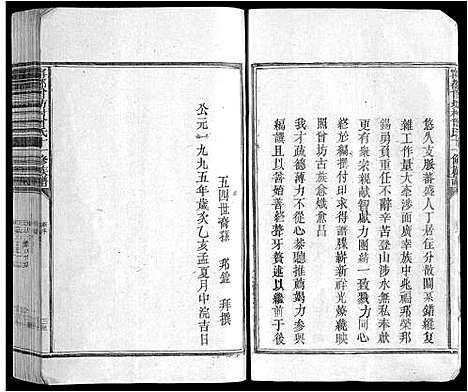 悠久支脈蕃盛人丁居住分散關系錯縱复
雜工作量大牽涉面廣幸族中兆福郎榮邦
錫勇負重任不辭辛苦登山涉水無私奉献
更有衆宗親献智献力團結一致戮力同心
終於編撰付印求得譜牒嶄新祥光燦爛映
照曾坊古族愈熾愈昌
我才疏德薄力不從心綦聽推薦竭力參與
稿讓且以善始善終聱牙贅述以繼前于後
五四世裔孫 邦 拜撰
公元一九九五年歲次乙亥孟夏月中浣吉日